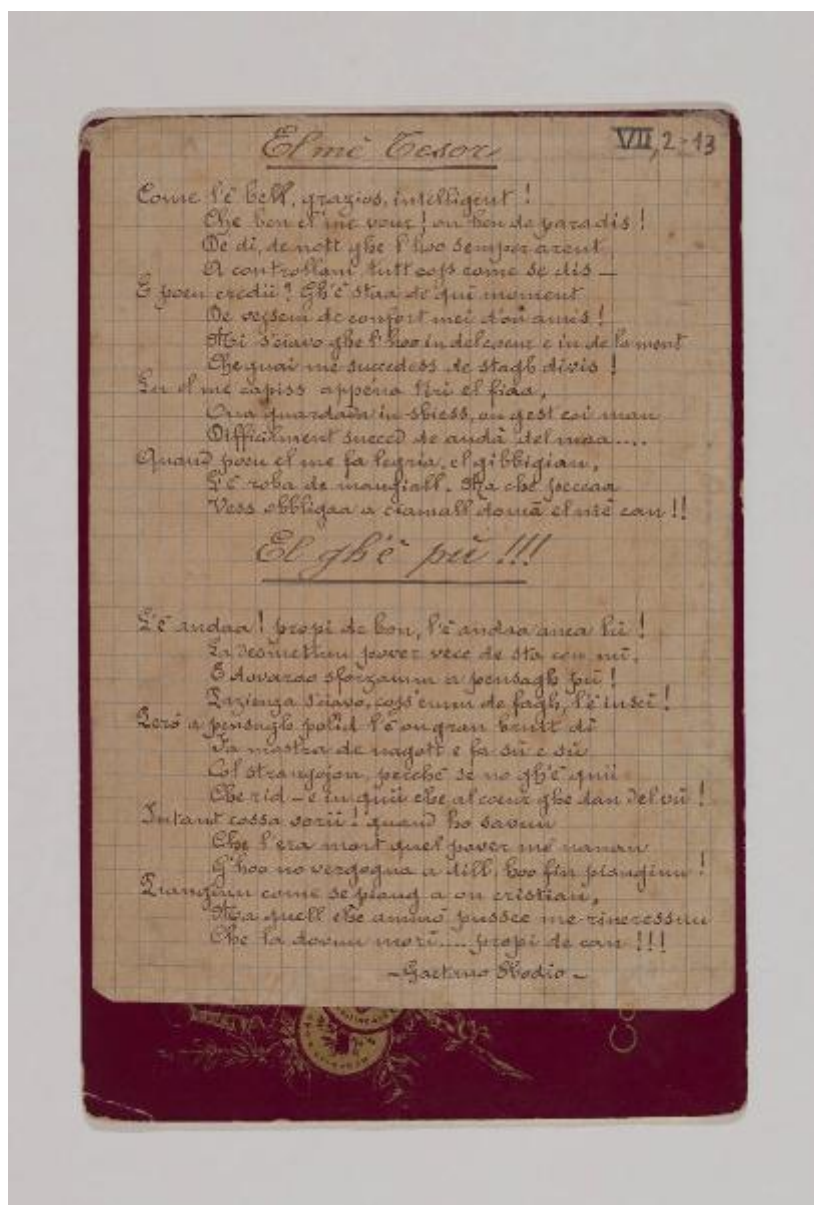 El mè Tesor
VII, 2-13
Come l'è bell, grazios, intelligent!
Che ben el me voeur! on ben de paradis!
De dì, de nott ghe l'hoo semper arent
A controllam tutt coss come se dis —
E poeu credii? Gh'è staa de qui moment
De vessem de confort mei d'on amis!
Mi s'ciavo ghe l'hoo in del coeur e in de la ment
Che guai me succedess de stagh divis!
Lu el me capiss appèna tiri el fiaa,
Ona guardada in sbiess, on gest coi man
Difficilment succed de andà del maa....
Quand poeu el me fa legria, el gibbigian,
L'è roba de mangiall. Ma che peccaa
Vess obbligaa a ciamall domà el mè can!!
El gh'è pù!!!
L'è andaa! propi de bon, l'è andaa anca lù!
La desmettuu pover vecc de sta con mì,
E dovaroo sforzamm a pensagh pù!
Pazienza s'ciavo, coss'emm de fagh, l'è inscì!
Però a pensagh polid l'è on gran brutt dì
Fa mostra de nagott e fa sù e sù
Col strangojon, perchè se no gh'è quii
Che rid — e in quii che al coeur ghe dan del vù!
Intant cossa vorii! quand ho savuu
Che l'era mort quel pover mè nanan
G'hoo no vergogna a dill, hoo fin piangiuu!
Piangiuu come se piang a on cristian,
Ma quell che ammò pussee me rincressuu
Che l'a dovuu morì.... propi de can!!!
— Gaetano —
Co